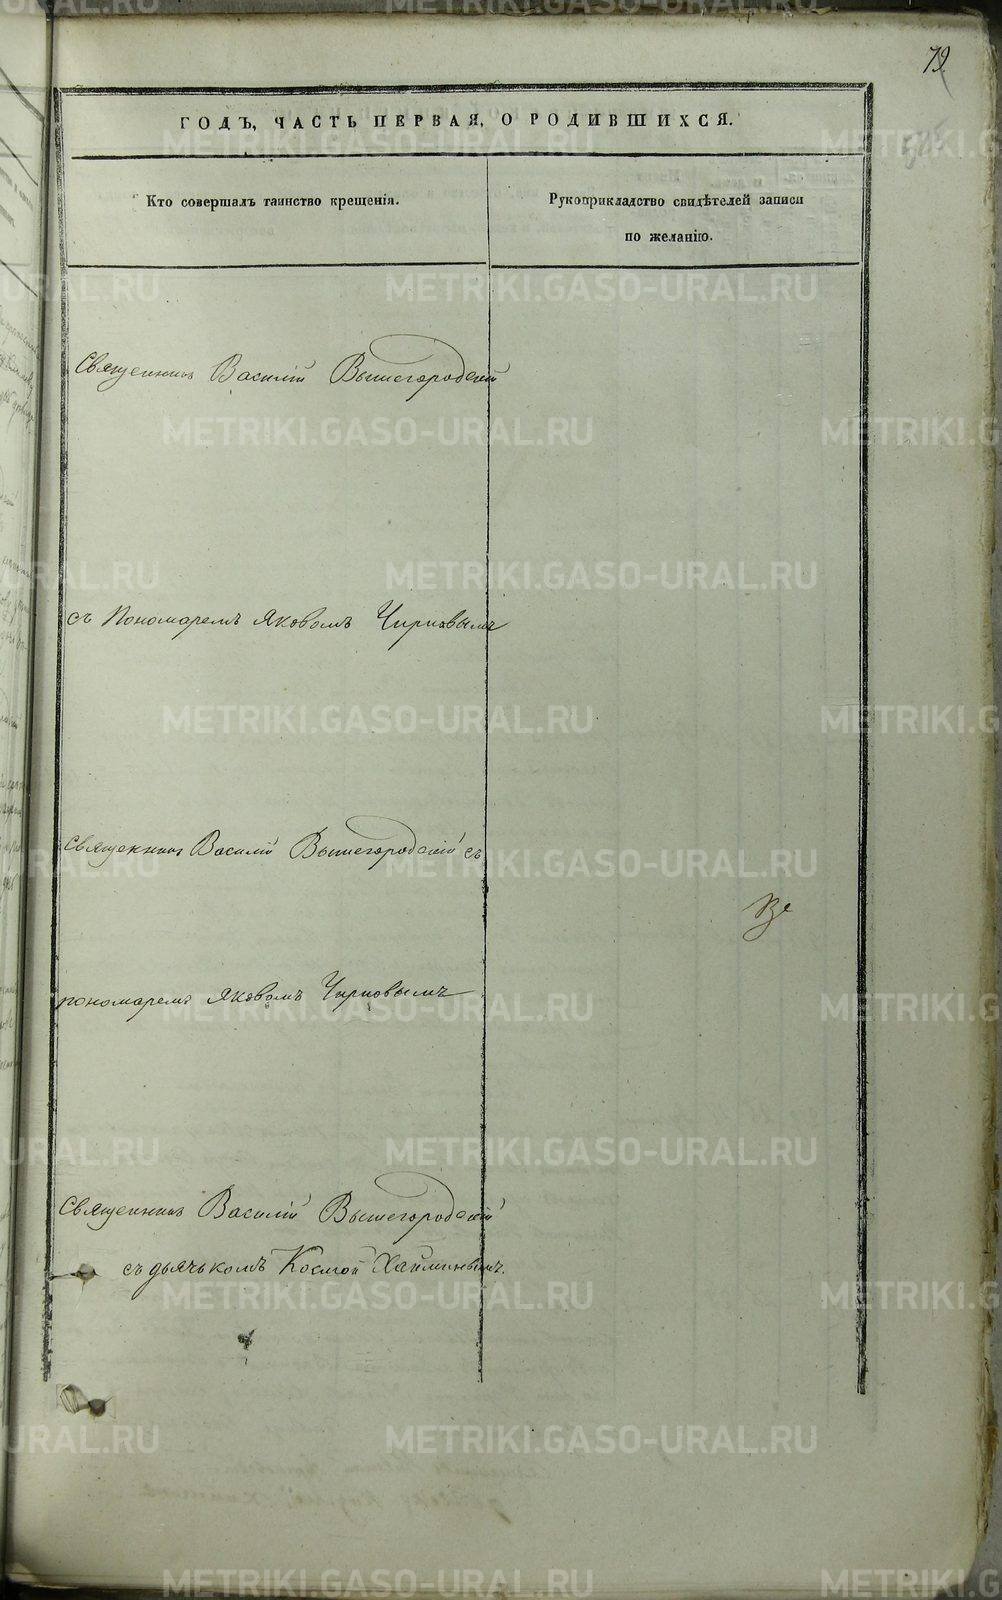 79
ГОДЪ, ЧАСТЬ ПЕРВАЯ, О РОДИВШИХСЯ.
Кто совершалъ таинство крещенія.
Рукоприкладство свидѣтелей записи
по желанію.
Священникъ Василій Вышегородскій
съ Пономаремъ Яковомъ Чирковымъ
Священникъ Василій Вышегородскій съ
пономаремъ Яковомъ Чирковымъ
Священникъ Василій Вышегородскій
съ дьячькомъ Космой Хайминымъ.
METRIKI.GASO-URAL.RU